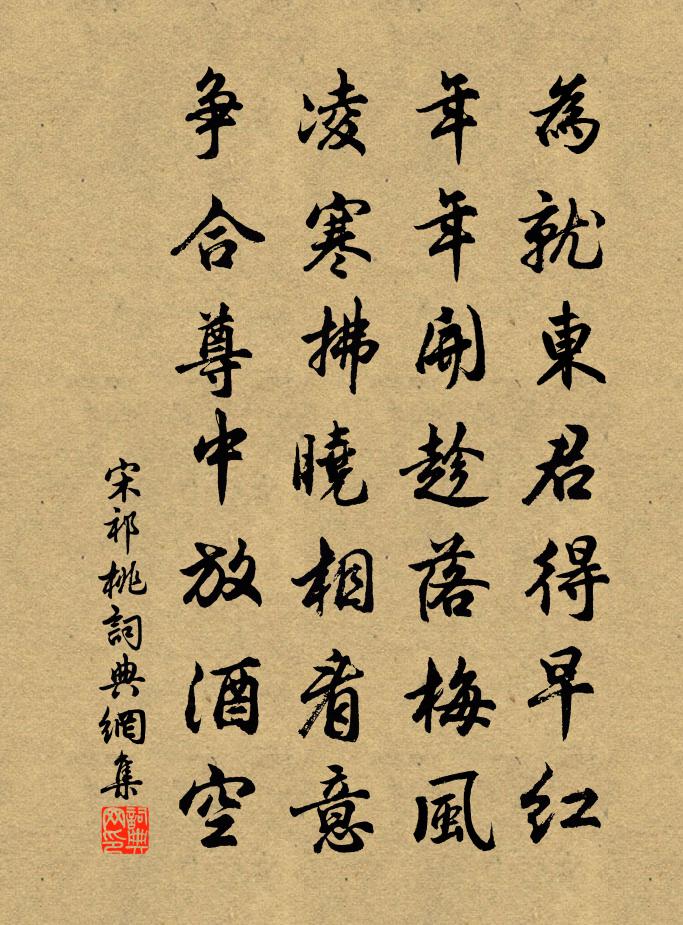 為就東君得早紅
年年開趁落梅風
凌寒拂曉相看意
争合尊中放酒空
宋祁桃詞典網集
詞典網印